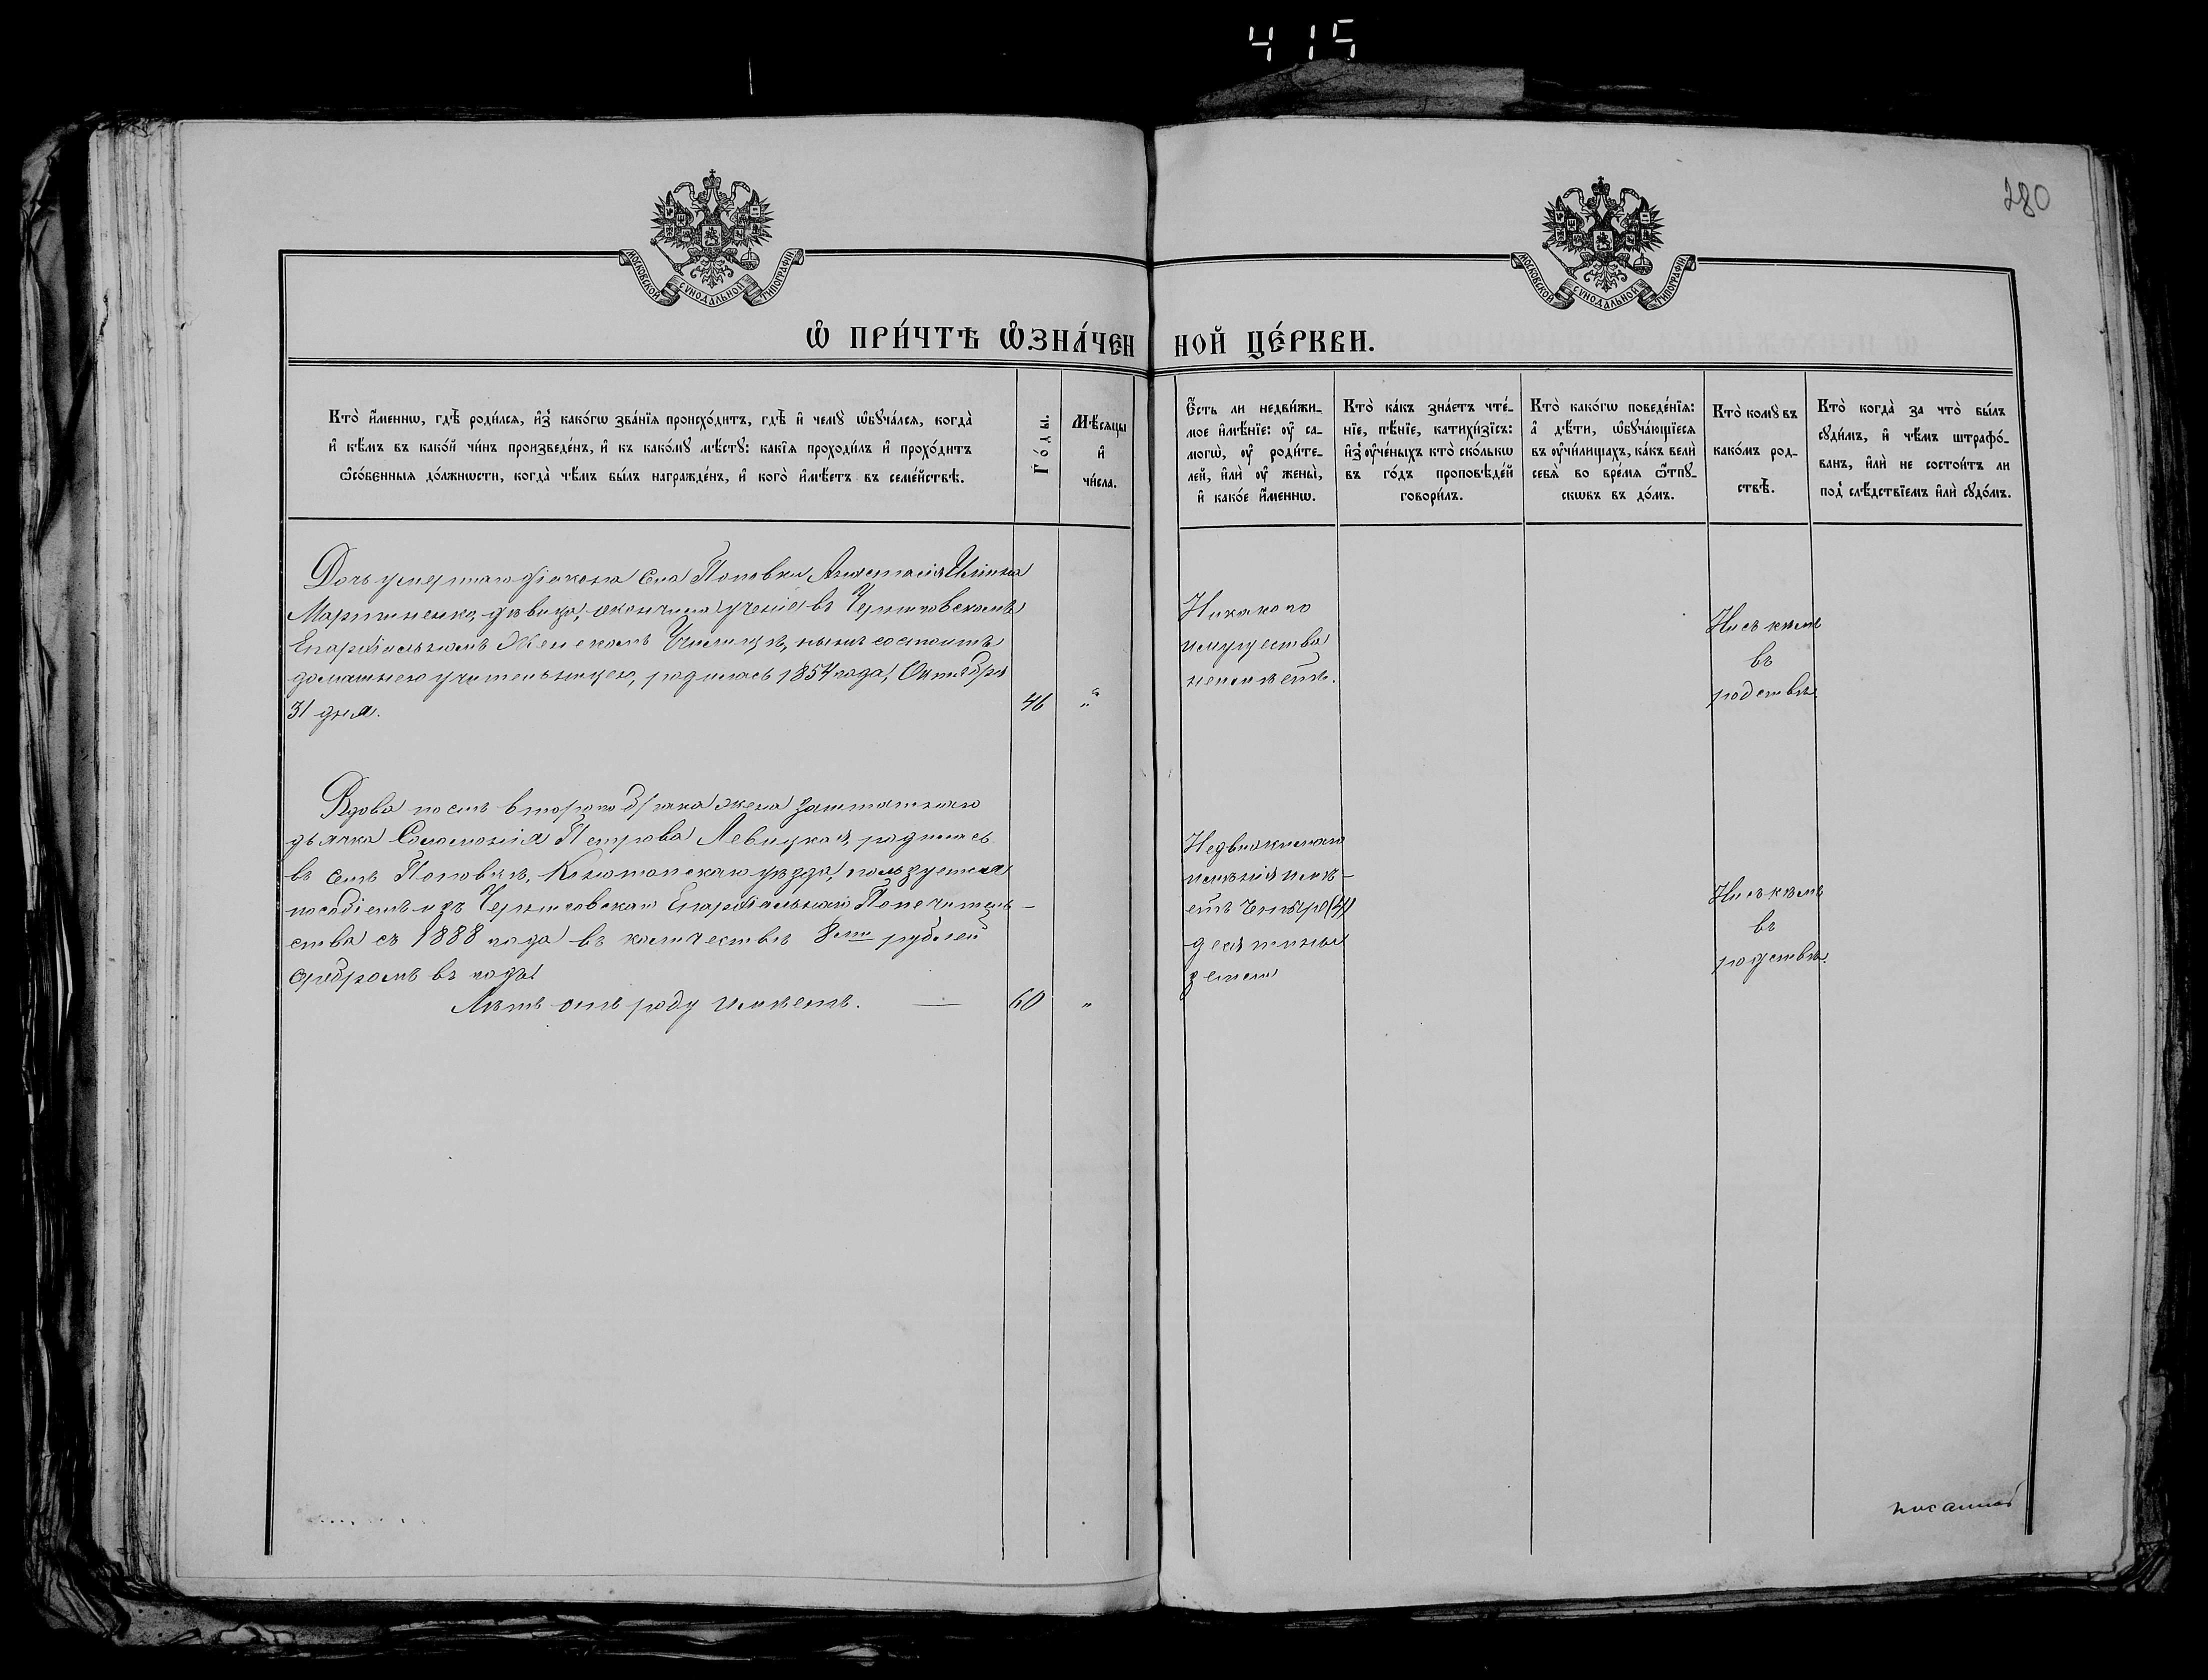 415
280
МОСКОВСКОЙ СѴНОДАЛЬНОЙ ТИПОГРАФІИ
МОСКОВСКОЙ СѴНОДАЛЬНОЙ ТИПОГРАФІИ
Ѽ ПРИ́ЧТѢ Ѽ҆ЗНА́ЧЕННОЙ ЦЕ́РКВИ.
Кто̀ и҆́меннѡ, гдѣ̀ роди́лсѧ, и҆з̾ како́гѡ зва́нїѧ происхо́дитъ, гдѣ̀ и҆ чемꙋ̀ ѡ҆бꙋча́лсѧ, когда̀
и҆ кѣ́мъ въ како́й чи́нъ произведе́нъ, и҆ къ како́мꙋ мѣ́стꙋ: какі̑ѧ проходи́лъ и҆ прохо́дитъ
ѻ҆со́бенныѧ до́лжнѡсти, когда̀ чѣ́мъ бы́лъ награжде́нъ, и҆ кого̀ и҆мѣ́етъ въ семе́йствѣ.
Го́ды.
Мѣ́сѧцы
и҆
чи́сла.
Є҆́сть ли недви́жи-
мое и҆мѣ́нїе: ᲂу҆ са-
могѡ̀, ᲂу҆ роди́те-
лей, и҆лѝ ᲂу҆ жены̀,
и҆ како́е и҆́меннѡ.
Кто̀ ка́къ зна́етъ чте́-
нїе, пѣ́нїе, катихи́зїсъ:
и҆з̾ ᲂу҆че́ныхъ кто̀ ско́лькѡ
въ го́дъ проповѣ́дей
говори́лъ.
Кто̀ како́гѡ поведе́нїѧ:
а҆ дѣ́ти, ѡ҆бꙋча́ющїесѧ
въ ᲂу҆чи́лищахъ, ка́къ велѝ
себѧ̀ во вре́мѧ ѿпꙋ-
скѡвъ въ до́мъ.
Кто̀ комꙋ̀ въ
како́мъ род-
ствѣ̀.
Кто̀ когда̀ за что̀ бы́лъ
сꙋди́мъ, и҆ чѣ́мъ штрафо́-
ванъ, и҆лѝ не состои́тъ ли
под̾ слѣ́дствїемъ и҆лѝ сꙋдо́мъ.
Дочь умершаго діакона села Поповки Анастасія Ильина
Мартыненко, дѣвица, окончила ученіе въ Черниговскомъ
Епархіальномъ Женскомъ Училищѣ, нынѣ состоитъ
домашнею учительницею, родилась 1854 года, Октября
31 дня.
46
"
Никакого
имущества
неимѣетъ.
Ни съ кѣмъ
въ
родствѣ.
Вдова послѣ второго брака жена заштатнаго
дьячка Соломонія Петрова Левицкая, родилась
въ селѣ Поповкѣ, Конотопскаго уѣзда, пользуется
пособіемъ изъ Черниговскаго Епархіальнаго Попечитель-
ства съ 1888 года въ количествѣ 8ми рублей
сребромъ въ годъ.
Лѣтъ отъ роду имѣетъ. —
60
"
Недвижимаго
имѣнія имѣ-
етъ четыре (4)
десятины
земли
Ни съ кѣмъ
въ
родствѣ.